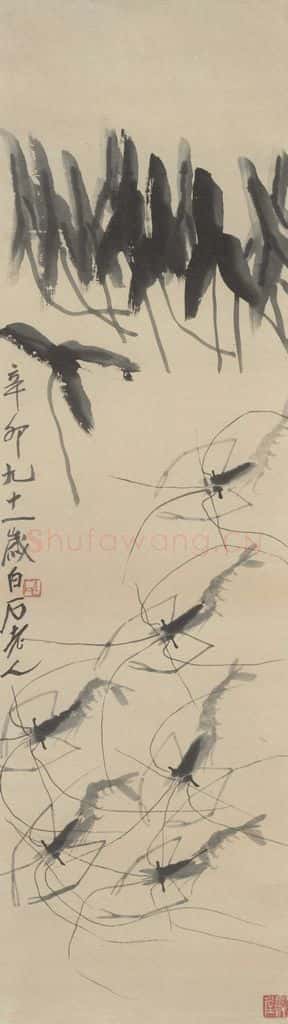 辛卯九十一歲白石老人
Shufawang.cn